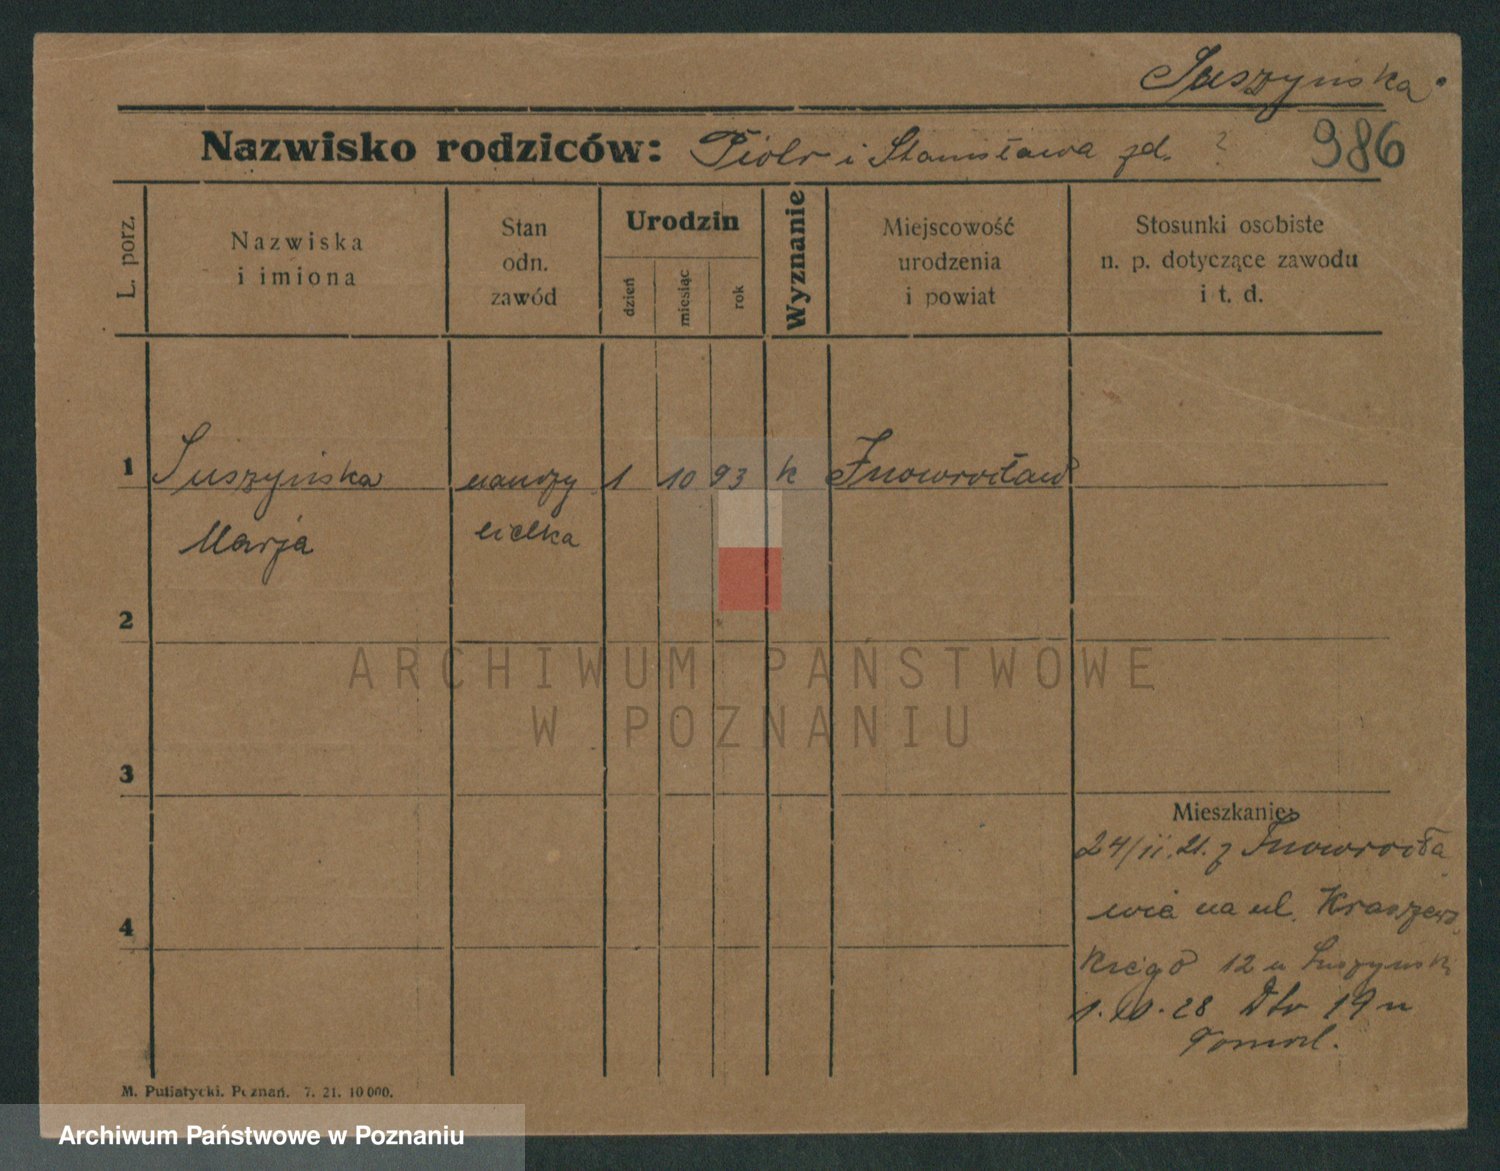 Suszyńska
Nazwisko rodziców: Piotr i Stanisława zd. ?
986
L. porz.
Nazwiska
i imiona
Stan
odn.
zawód
Urodzin
dzień
miesiąc
rok
Wyznanie
Miejscowość
urodzenia
i powiat
Stosunki osobiste
n. p. dotyczące zawodu
i t. d.
1 Suszyńska nauczy 1 10 93 k Inowrocław
Marja cielka
2
ARCHIWUM PAŃSTWOWE
W POZNANIU
3
Mieszkanie:
24/11.21. z Inowrocła
wia na ul. Kraszews
4
kiego 12 u Suszyński
1.10.28 19 u
M. Putiatycki. Poznań. 7. 21. 10 000.
Archiwum Państwowe w Poznaniu